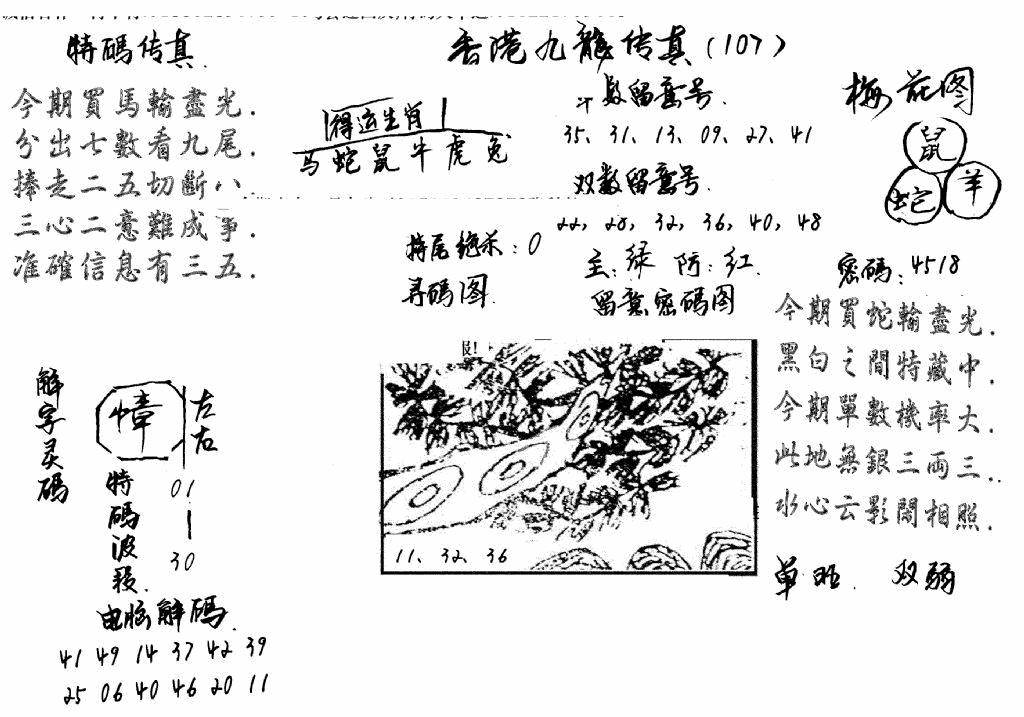 特碼传真
今期買馬輸盡光.
分出七數看九尾.
捧走二五切斷八.
三心二意難成爭.
准確信息有三五.
香港九龍传真(107)
得运生肖
马蛇鼠牛虎兔
数留意号.
35、31、13、09、27、41
双数留意号.
22,28,32,36,40,48
特尾绝杀:0
主:绿 防:红.
寻碼图
留意密碼图
梅花图
鼠
蛇 羊
密碼:4518
今期買蛇輸盡光.
黑白之間特藏中.
今期單數機率大.
此地無銀三両三..
水心云影閣相照.
单旺 双弱
解字灵碼
幛
左右
特碼波段.
01
30
11、32、36
电脑解碼.
41 49 14 37 42 39
25 06 40 46 20 11